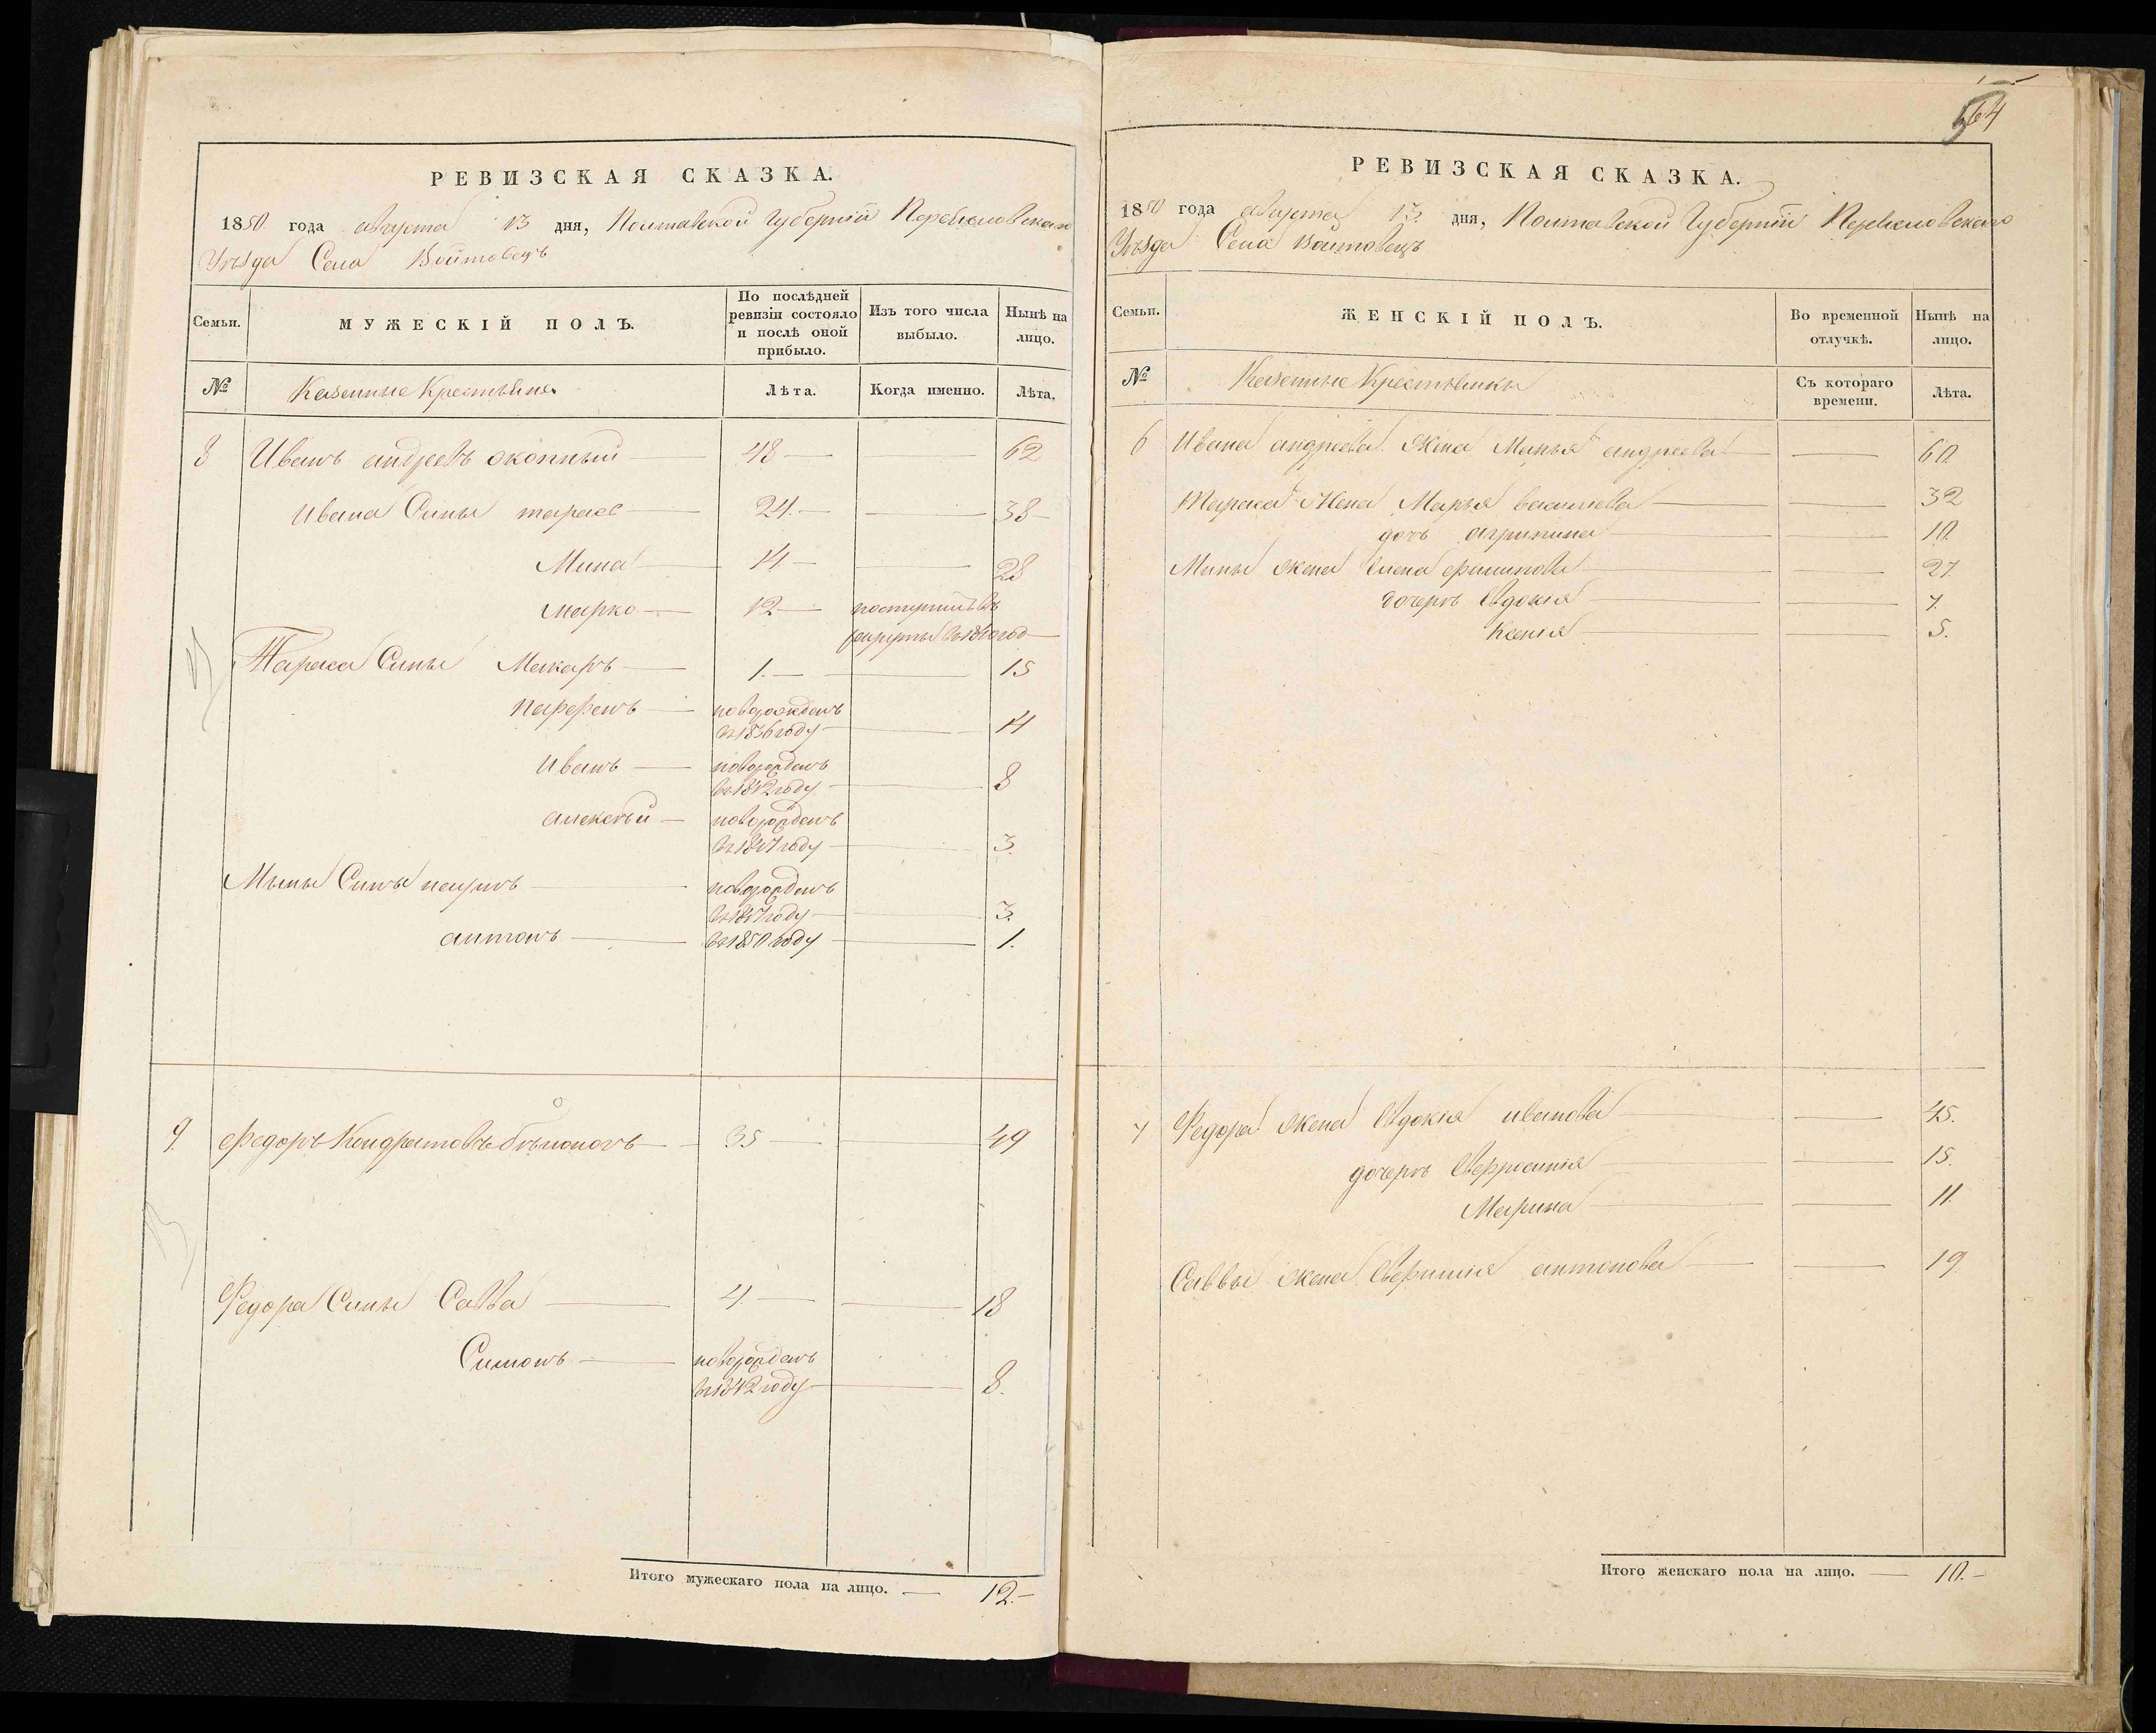 РЕВИЗСКАЯ СКАЗКА.
1850 года августа 13 дня, Полтавской Губерніи Переяславскаго
Уѣзда Села Войтовецъ
Семьи.
МУЖЕСКІЙ ПОЛЪ.
По послѣдней ревизіи состояло и послѣ оной прибыло.
Изъ того числа выбыло.
Нынѣ на лицо.
№
Казенные Крестьяне
Лѣта.
Когда именно.
Лѣта.
8 Иванъ андреевъ 48 — — 62
Ивана Сины тарасъ — 24. — — 38
Мина — 14 — — 28
Марко — 12 — поступилъ въ
рекруты въ 1840 год —
Тараса Сины Макаръ — 1. — — 15
парфенъ — новорожденъ
въ 1836 году — — 14
иванъ — новорожденъ
въ 1842 году — — 8
алексѣй — новорожденъ
въ 1847 году — — 3.
Мины Сины — новорожденъ
въ 1847 году — — 3.
антонъ — въ 1850 году — — 1.
9. Федоръ Кондратовъ — 35 — — 49
Федора Сины Савва — 4. — — 18
Симонъ — новорожденъ
въ 1842 году — — 8.
Итого мужескаго пола на лицо. — 12. —
564
РЕВИЗСКАЯ СКАЗКА.
1850 года августа 13. дня, Полтавской Губерніи Переяславскаго
Уѣзда Села Войтовецъ
Семьи.
ЖЕНСКІЙ ПОЛЪ.
Во временной отлучкѣ.
Нынѣ на лицо.
№
Казенные Крестьянки
Съ котораго времени.
Лѣта.
6 Ивана андреева жена андреева — — 60
Тараса Жена Марья василіева — — 32
дочь агрипина — — 10.
Мины жена Елена филипова — — 27.
дочери Евдокія — — 7.
Ксенія — — 5.
7 Федора жена Евдокія иванова — — 45.
дочери Евфросинія — — 15.
Марина — — 11.
Саввы жена антонова — — 19.
Итого женскаго пола на лицо. — 10. —